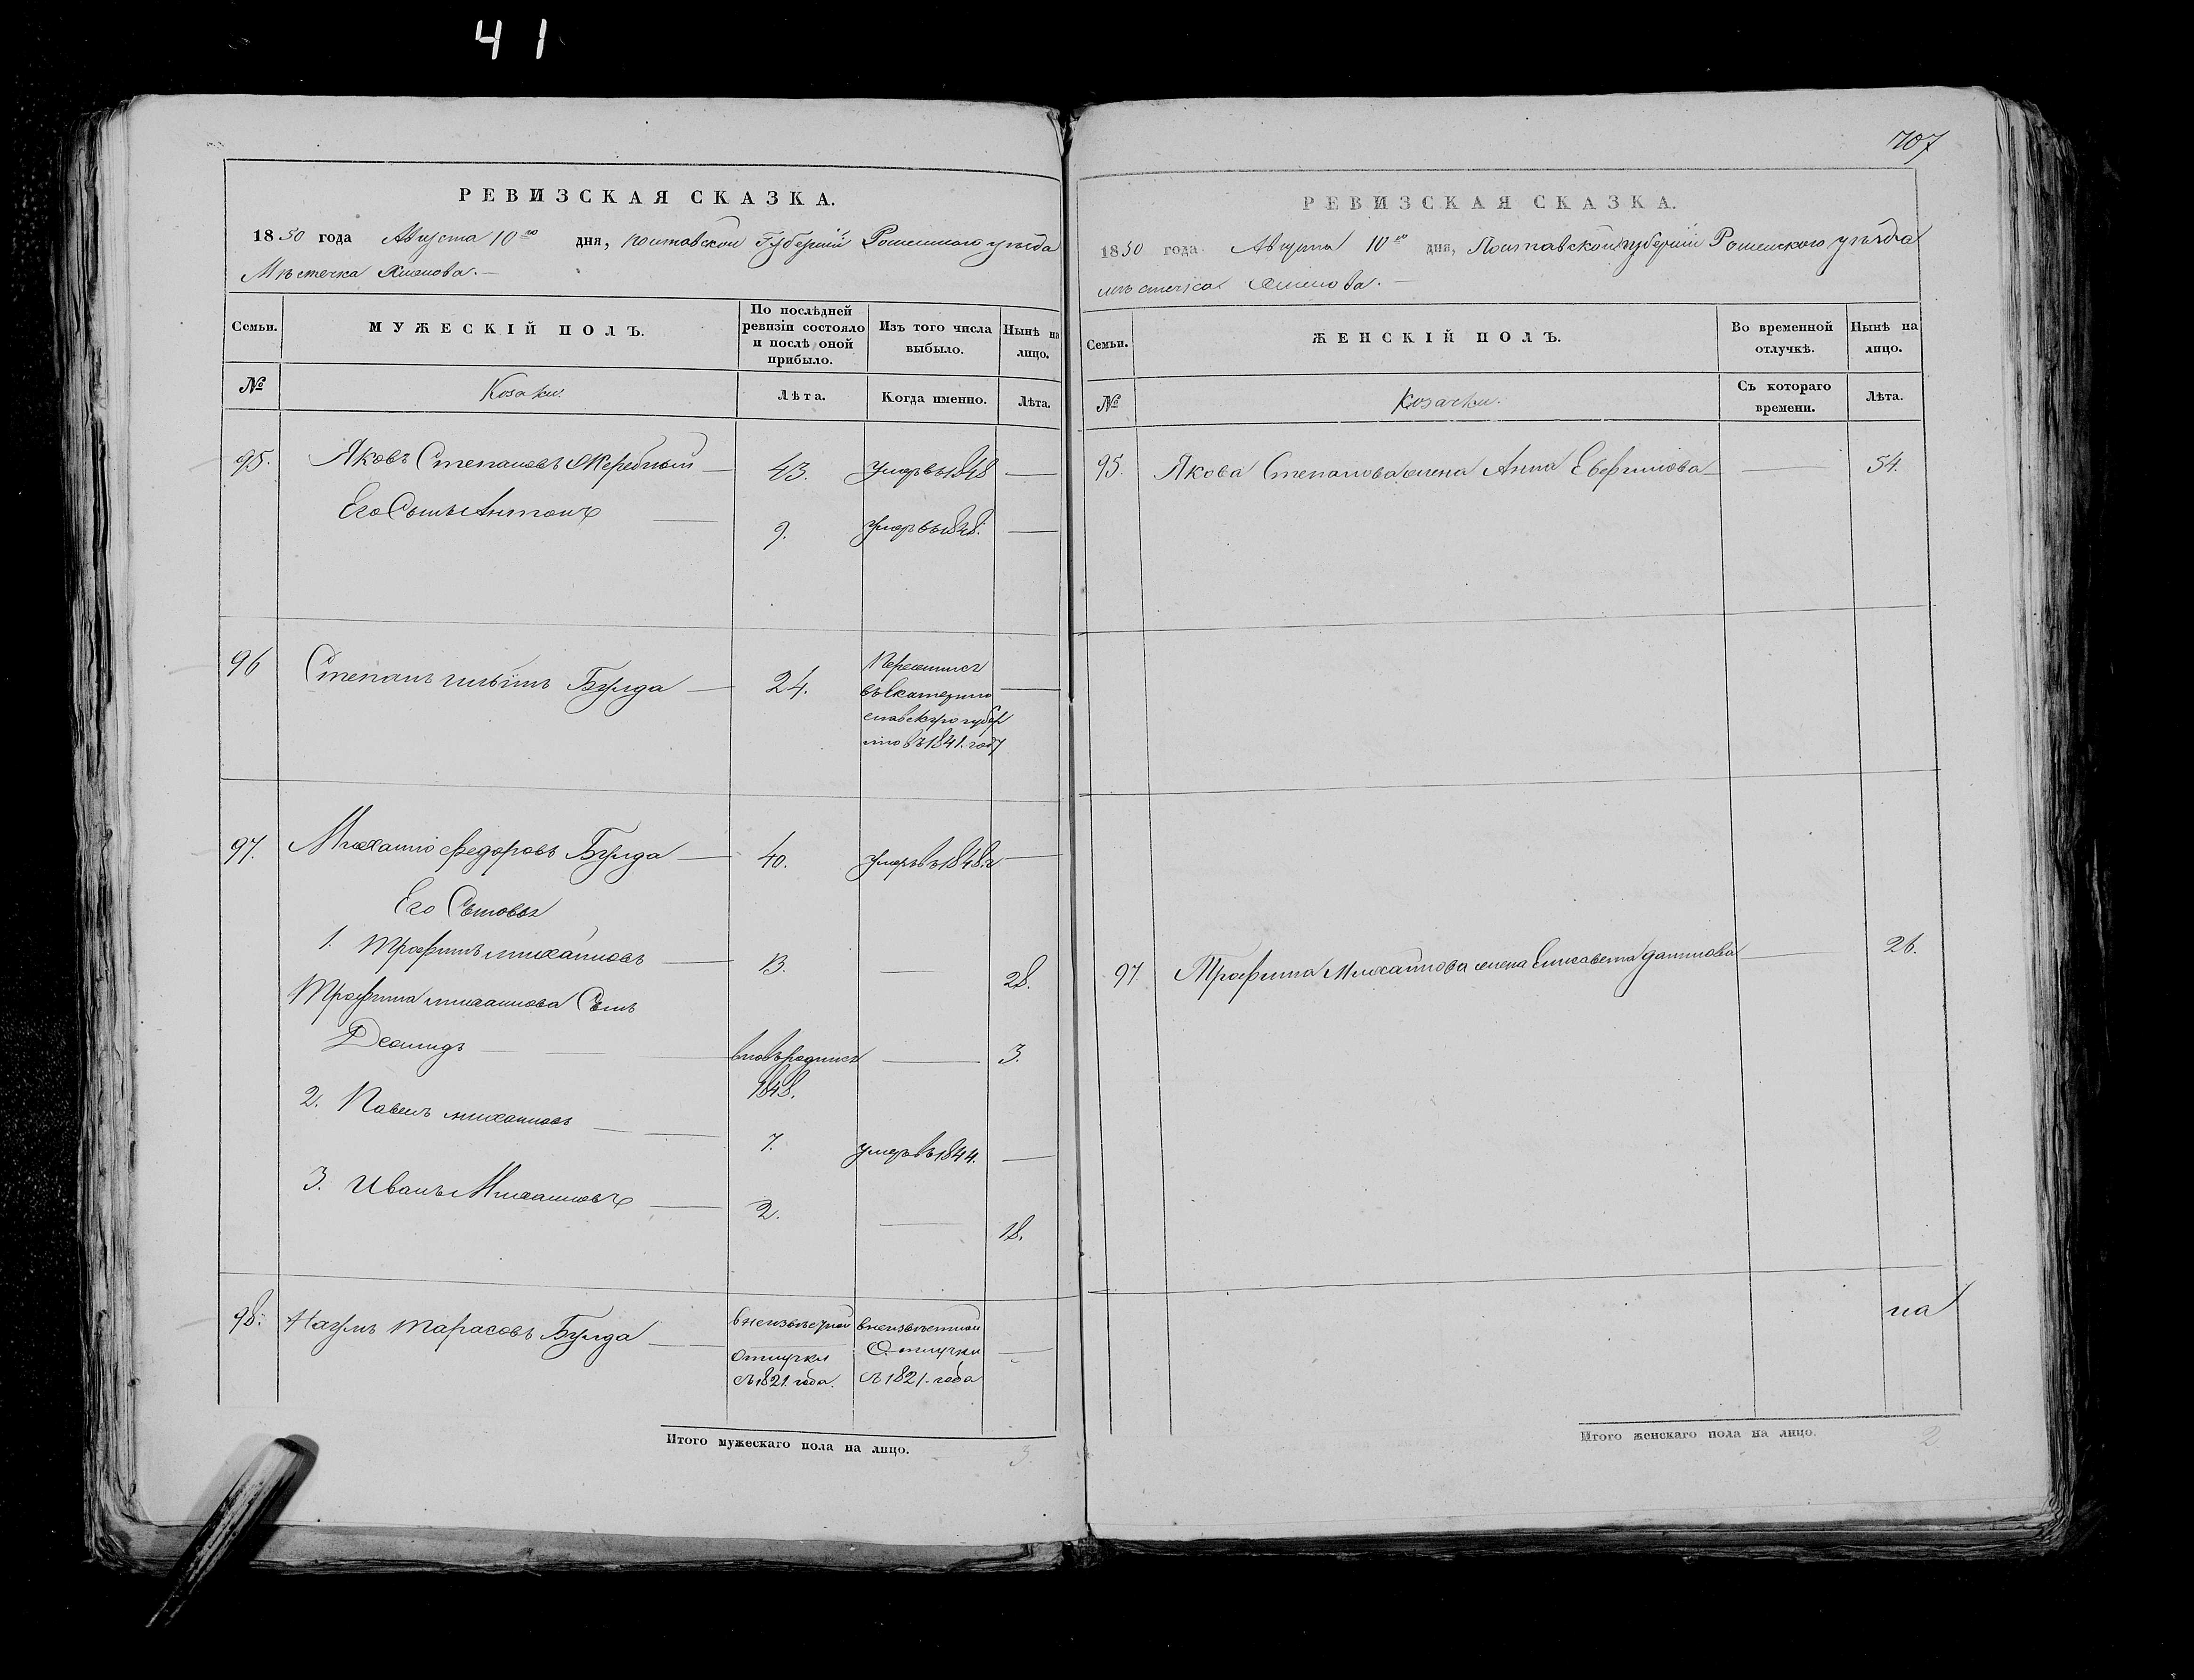 41
707
РЕВИЗСКАЯ СКАЗКА.
1850 года Августа 10го дня, полтавской Губерніи Роменского уѣзда
Мѣстечка
Семьи.
МУЖЕСКІЙ ПОЛЪ.
По послѣдней ревизіи состояло и послѣ оной прибыло.
Изъ того числа выбыло.
Нынѣ на лицо.
№
Козаки.
Лѣта.
Когда именно.
Лѣта.
95. Яковъ Степановъ Жеребный — 43. умеръ въ 1848 —
Его Сынъ Антонъ — 9. умеръ въ 1848. —
96 Степанъ Ильинъ Булда — 24. Переселился —
въ Екатерино
славскую губер
нію въ 1841. году
97. Михайло Федоровъ Булда — 40. умеръ въ 1848. г —
Его Сыновья
1. Трофимъ михайловъ — 13. 28.
Трофима михайлова Сынъ
Деомидъ — вновь родился — 3.
1848.
2. Павелъ михайловъ — 7. умеръ въ 1844. —
3. Иванъ Михайловъ — 2. — 18.
98. Наумъ Тарасовъ Булда — в неизвѣстной в неизвѣстной —
отлучки Отлучки
съ 1821. года. съ 1821. года
Итого мужескаго пола на лицо. 3
РЕВИЗСКАЯ СКАЗКА.
1850 года Августа 10го дня, Полтавской губерніи Роменского уѣзда
мѣстечка
Семьи.
ЖЕНСКІЙ ПОЛЪ.
Во временной отлучкѣ.
Нынѣ на лицо.
№
Козачки.
Съ котораго времени.
Лѣта.
95. Якова Степанова жена Анна Евфимова — 54.
97 Трофима Михайлова жена Елисавета Данилова — 26.
на
Итого женскаго пола на лицо. 2